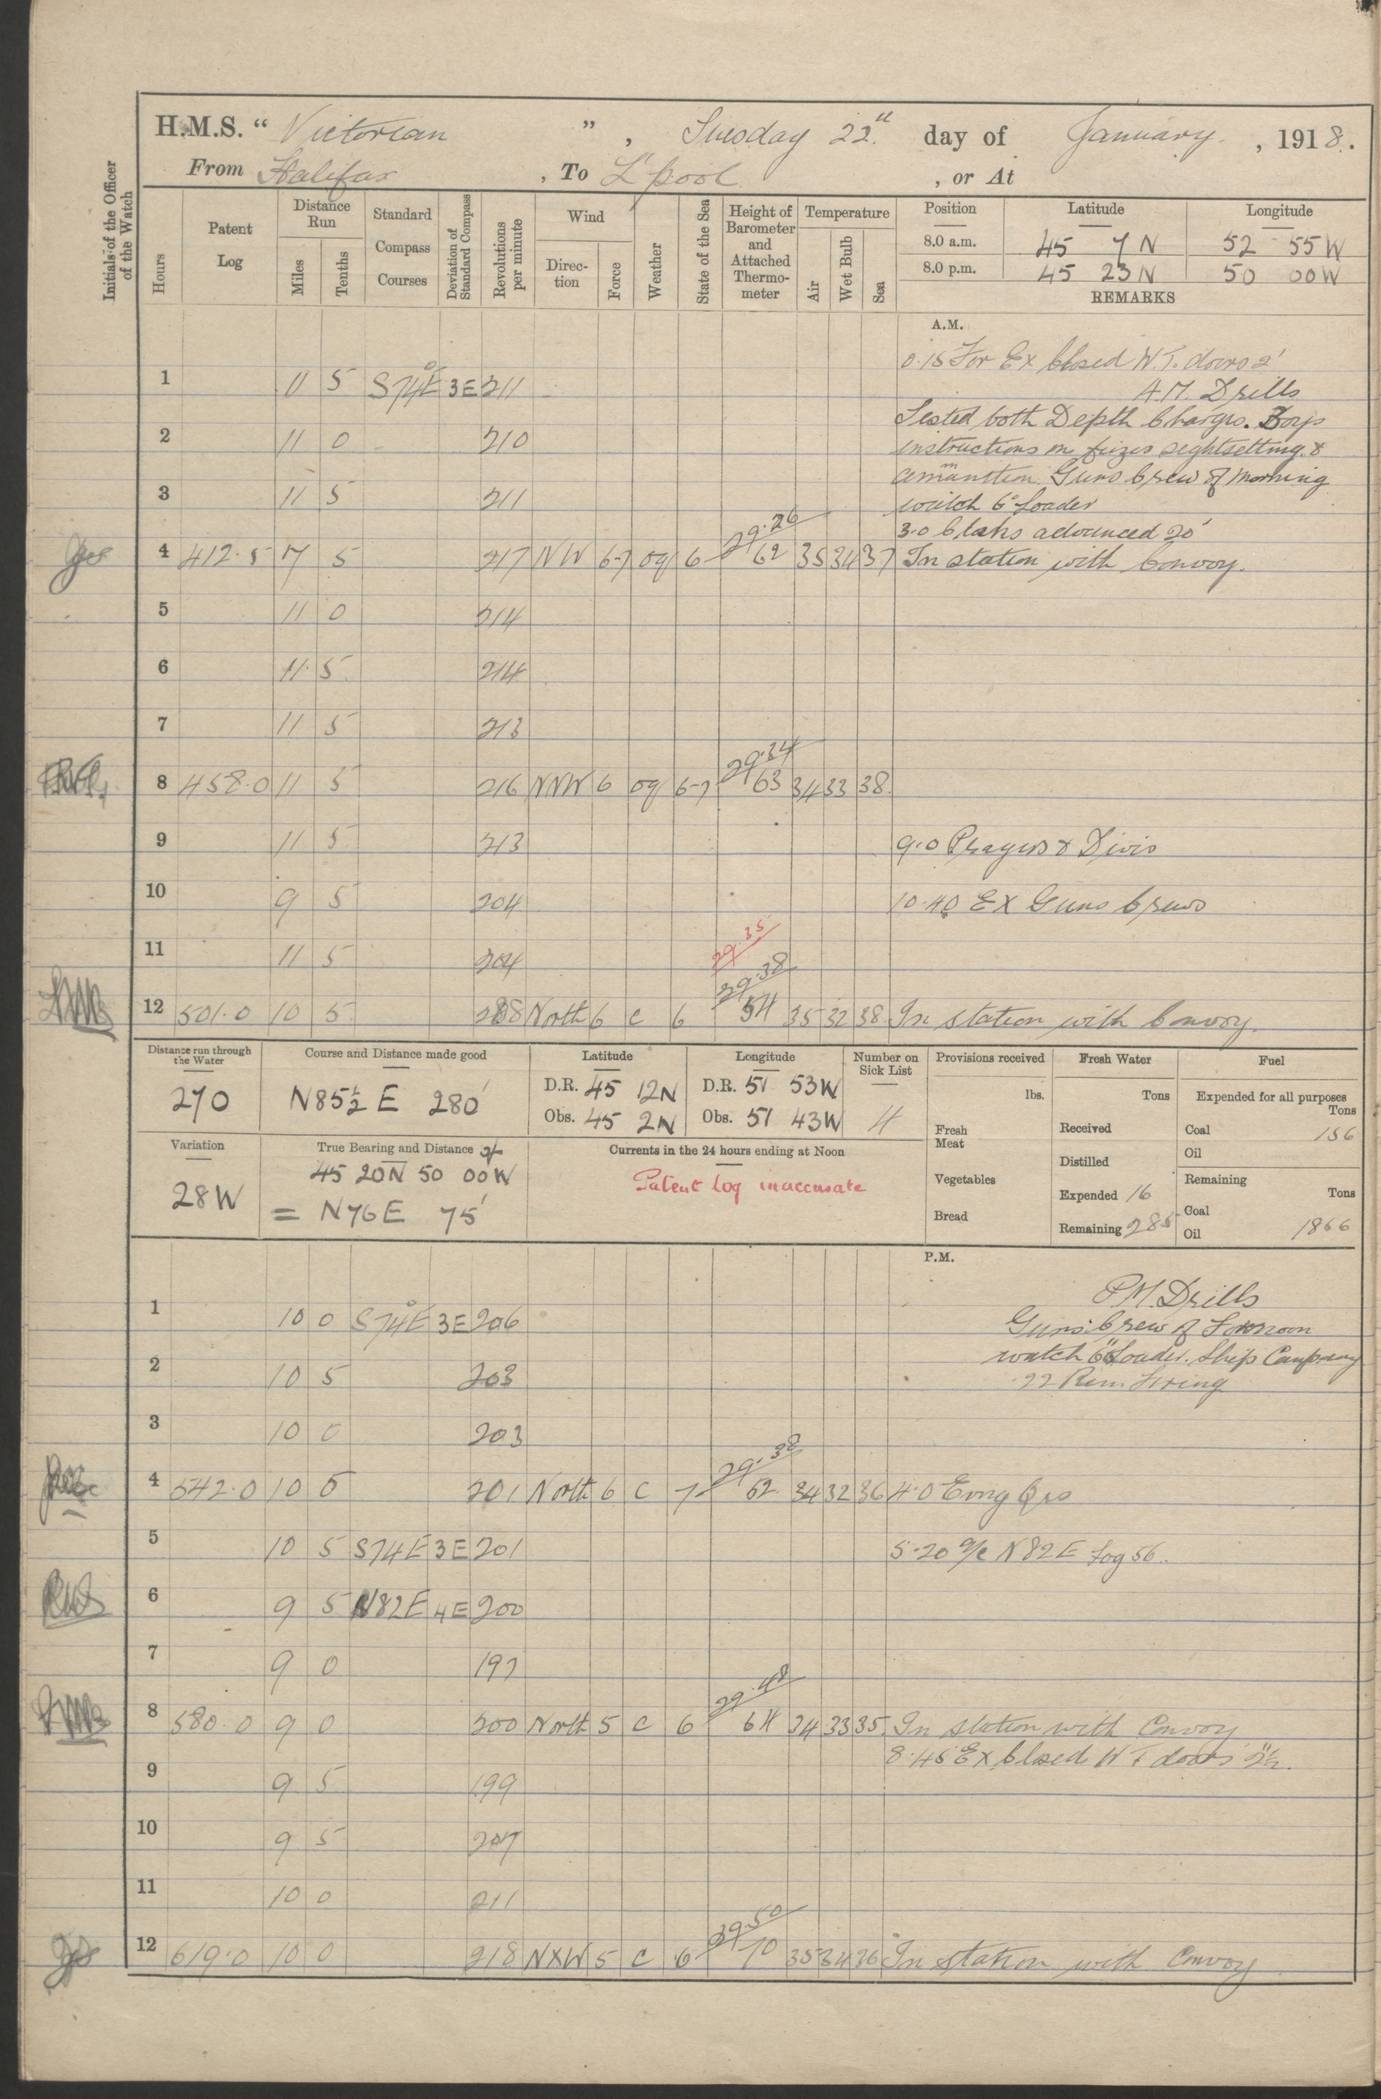 H.M.S. " Victorian " , Tuesday 22nd day of January , 1918.
From Halifax , To L'pool , or At
Initials of the Officer of the Watch
Hours
Patent Log
Distance Run
Miles
Tenths
Standard Compass Courses
Deviation of Standard Compass
Revolutions per minute
Wind
Direction
Force
Weather
State of the Sea
Height of Barometer and Attached Thermometer
Temperature
Air
Wet Bulb
Sea
Position Latitude Longitude
8.0 a.m. 45 7 N 52 55 W
8.0 p.m. 45 23 N 50 00 W
REMARKS
A.M.
0.15 For Ex Closed W.T. doors 2'
1 11 5 S74°E 3E 211
A.M. Drills
Tested both Depth Charges. Boys
2 11 0 210
instructions on fuzes sightsetting &
amunition Guns Crew of morning
3 11 5 211
watch 6" Loader
3.0 Clocks advanced 20'
4 412.5 7 5 217 NW 6-7 og 6 29.26 62 35 34 37 In station with Convoy.
5 11 0 214
6 11 5 214
7 11 5 213
8 458.0 11 5 216 NNW 6 og 6-7 29.34 63 34 33 38
9 11 5 213 9.0 Prayers & Divis
10 9 5 204 10.40 Ex Guns Crews
11 11 5 204
29.35
12 501.0 10 5 208 North 6 c 6 29.38 54 35 32 38 In station with Convoy.
Distance run through the Water
270
Course and Distance made good
N85½E 280'
Latitude
D.R. 45 12N
Obs. 45 2N
Longitude
D.R. 51 53W
Obs. 51 43W
Number on Sick List
4
Provisions received
lbs.
Fresh Meat
Vegetables
Bread
Fresh Water
Tons
Received
Distilled
Expended 16
Remaining 285
Fuel
Expended for all purposes
Tons
Coal 156
Oil
Remaining
Tons
Coal
Oil 1866
Variation
28W
True Bearing and Distance of
45 20N 50 00W
= N76E 75'
Currents in the 24 hours ending at Noon
Patent Log inaccurate
P.M.
P.M. Drills
1 10 0 S74°E 3E 206
Guns Crew of Forenoon
watch 6" Loader. Ship Company
2 10 5 203
.22 Rem. Firing
3 10 0 203
4 542.0 10 5 201 North 6 c 7 29.38 62 34 32 36 4.0 Evng Qrs
5 10 5 S74E 3E 201 5.20 a/c N82E Log 56.
6 9 5 N82E 4E 200
7 9 0 197
8 580.0 9 0 200 North 5 c 6 29.48 64 34 33 35 In station with Convoy
8.45 Ex Closed W T doors 2½.
9 9 5 199
10 9 5 207
11 10 0 211
12 619.0 10 0 218 NXW 5 c 6 29.50 70 35 34 36 In station with Convoy